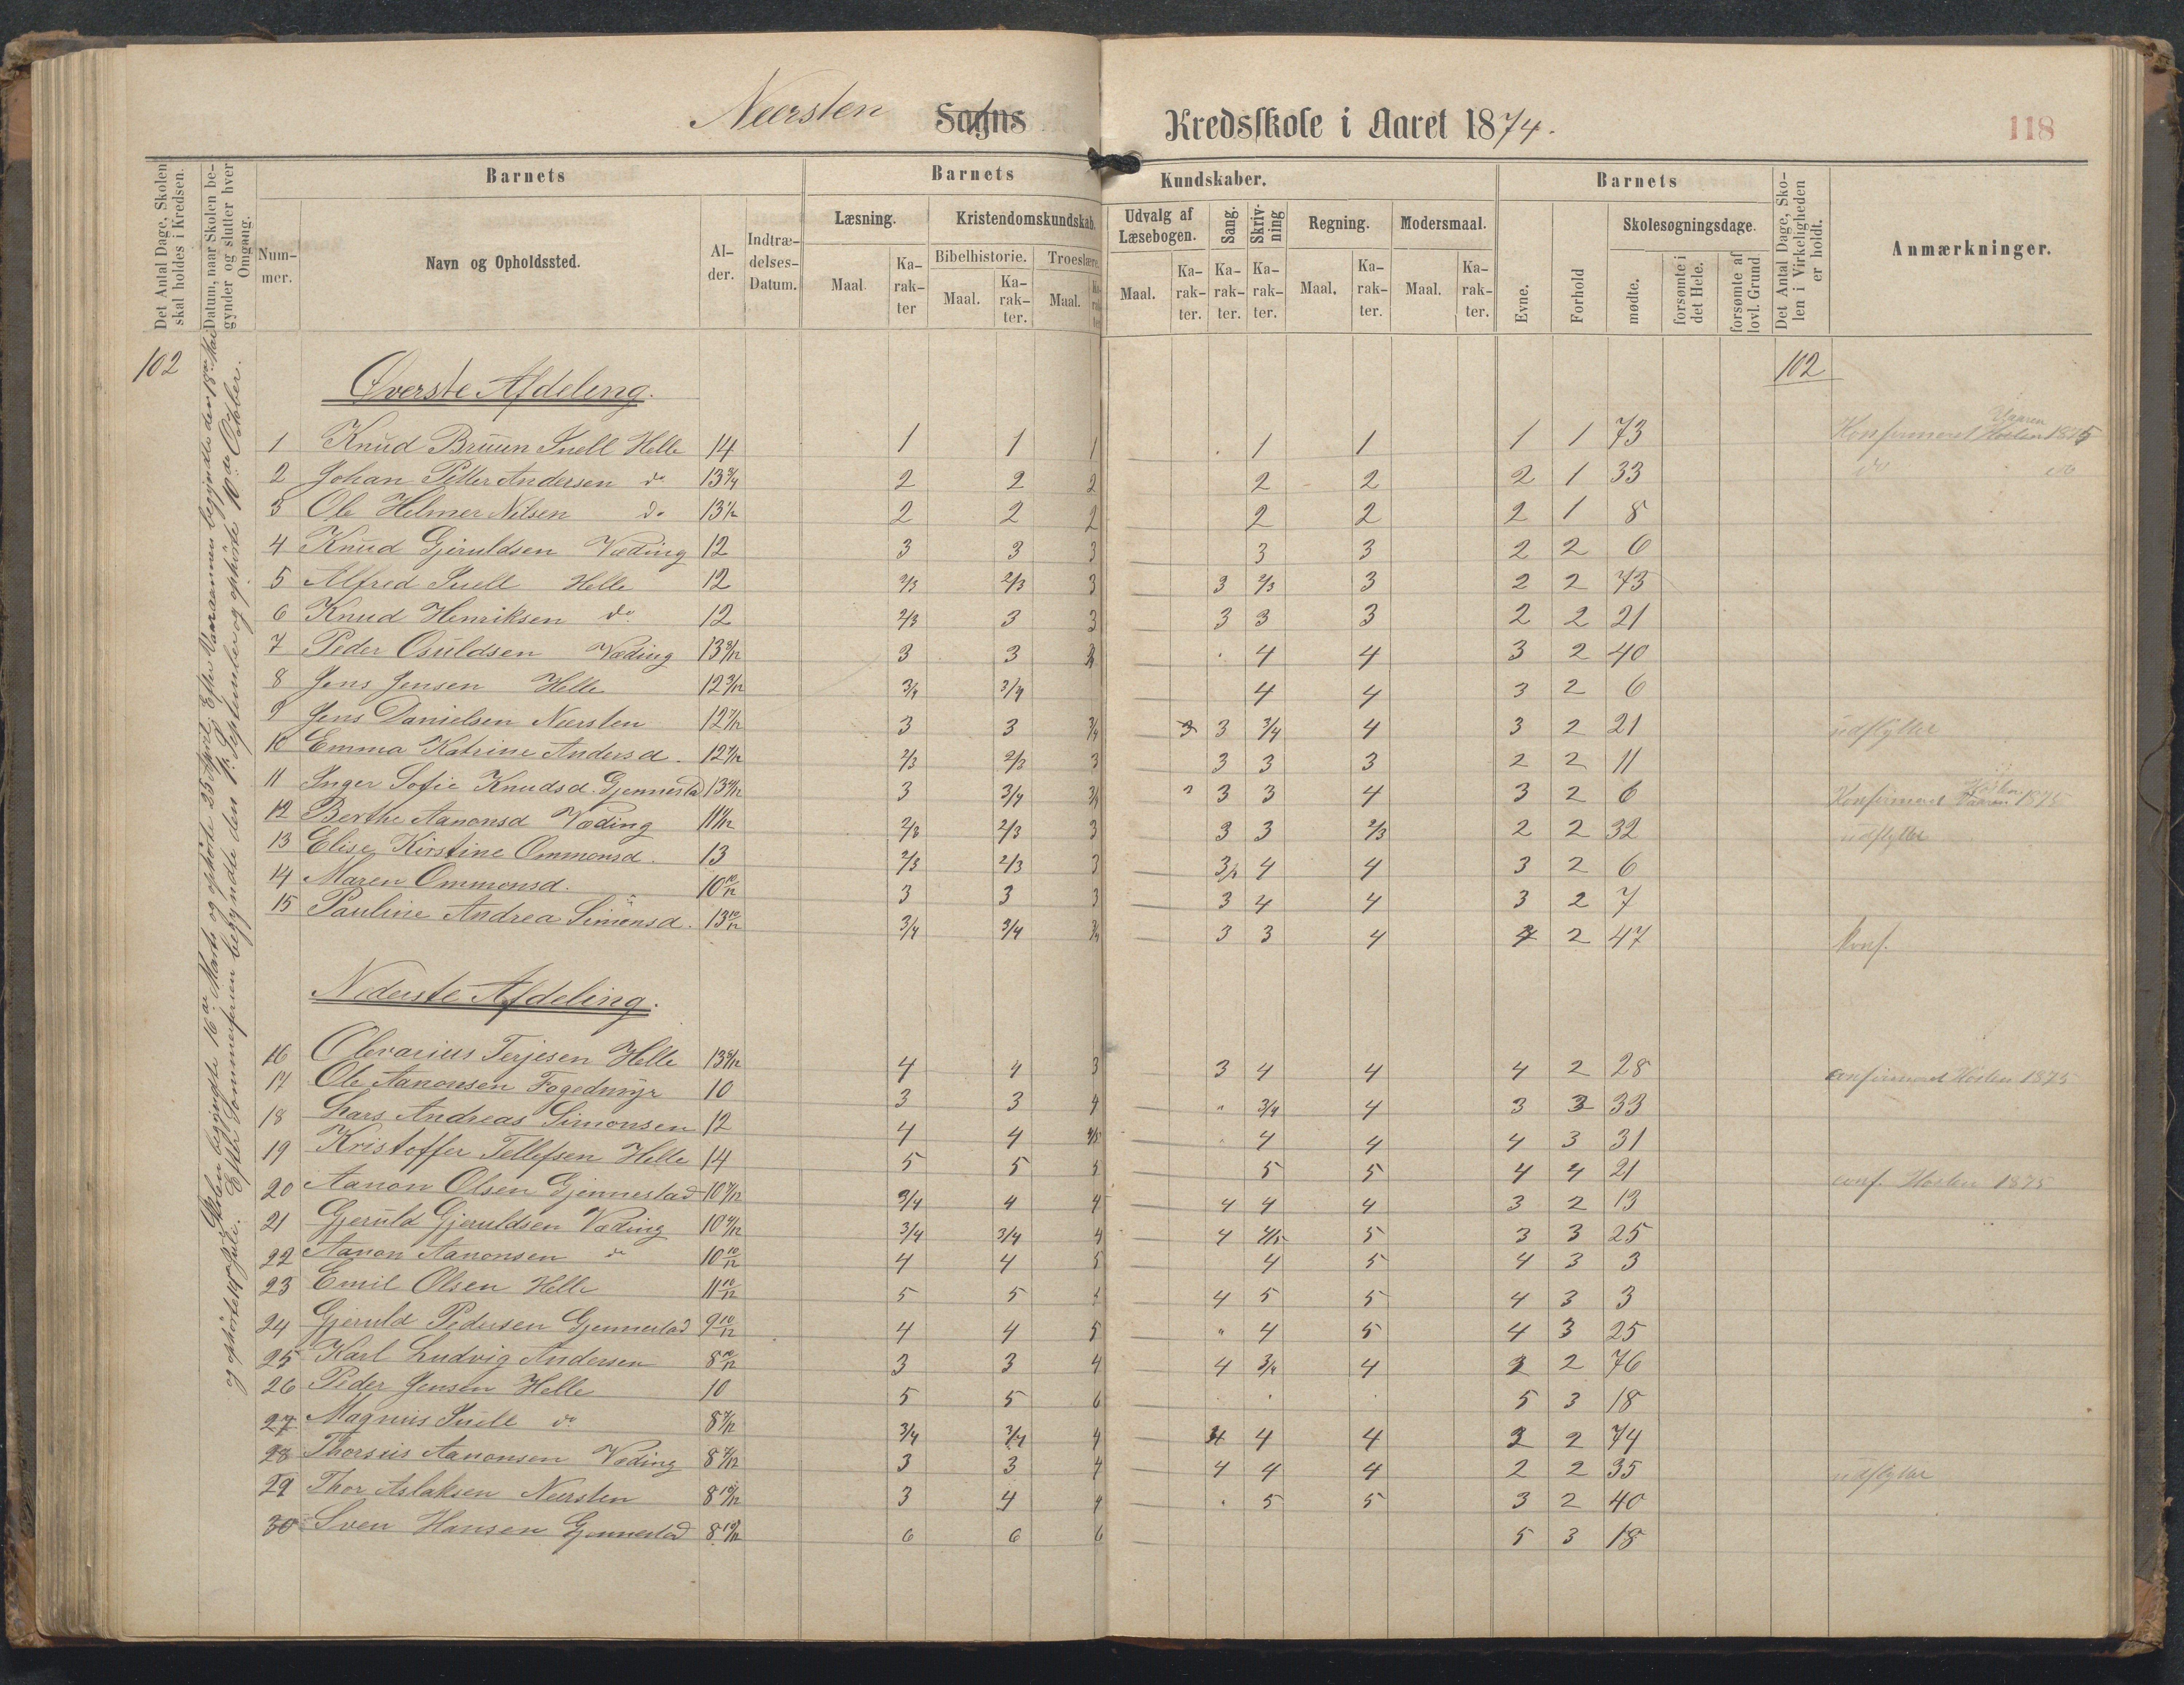 Neersten Sogns Kredsskole i Aaret 1874.
118
Det Antal Dage, Skolen skal holdes i Kredsen.
Datum, naar Skolen begynder og slutter hver Omgang.
Barnets
Nummer.
Navn og Opholdssted.
Alder.
Indtrædelses-Datum.
Barnets Kundskaber.
Læsning.
Maal.
Karakter
Kristendomskundskab.
Bibelhistorie.
Maal.
Karakter.
Troeslære.
Maal.
Udvalg af Læsebogen.
Maal.
Karakter.
Sang.
Karakter.
Skrivning
Karakter.
Regning.
Maal.
Karakter.
Modersmaal.
Maal.
Karakter.
Barnets
Evne.
Forhold
Skolesøgningsdage.
mødte.
forsømte i det Hele.
forsømte af lovl. Grund
Det Antal Dage, Skolen i Virkeligheden er holdt.
Anmærkninger.
102
Skolen begyndte 16de Marts og ophörte 25 April. Efter Vaarannen begyndte den 18de Mai
og ophörte 14de Juli. Efter Sommerferien begyndte den 1ste September og ophörte 10de Oktober.
102
Øverste Afdeling.
1 Knud Bruun Snell Helle 14 1 1 1 1 1 1 1 73 Konfirmeret Vaaren Hösten 1875
2 Johan Petter Andersen do 13 3/4 2 2 2 2 2 2 1 33 do do
3 Ole Helmer Nilsen do 13 1/2 2 2 2 2 2 2 1 8
4 Knud Gjeruldsen Væding 12 3 3 3 3 3 2 2 6
5 Alfred Snell Helle 12 2/3 2/3 3 3 2/3 3 2 2 73
6 Knud Henriksen do 12 2/3 3 3 3 3 3 2 2 21
7 Peder Osuldsen Væding 3 3 4 4 3 2 40
8 Jens Jensen Helle 12 3/12 3/4 3/4 4 4 3 2 6
9 Jens Danielsen Neersten 12 7/12 3 3 3/4 3 3 3/4 4 3 2 21 udflytter
10 Emma Katrine Andersd. 2/3 2/3 3 3 3 3 2 2 11
11 Inger Sofie Knudsd. Gjennestad 3 3/4 3/4 3 3 4 3 2 6 Konfirmeret Hösten Vaaren 1875
12 Berthe Aanonsd Væding 2/3 2/3 3 3 3 2/3 2 2 32 udflytter
13 Elise Kirstine Ommonsd. 13 2/3 2/3 3 4 4 3 2 6
14 Maren Ommonsd. 10 10/12 3 3 3 3 4 4 3 2 7
15 Pauline Andrea Simonsd. 13 10/12 3/4 3/4 3/4 3 3 4 2 47 Konf.
Nederste Afdeling.
16 Olevarius Terjesen Helle 4 4 3 3 4 4 4 2 28 Confirmeret Hösten 1875
17 Ole Aanonsen Fogedmyr 10 3 3 4 " 3/4 4 3 3 33
18 Lars Andreas Simonsen 12 4 4 4/5 4 4 4 3 31
19 Kristoffer Tellefsen Helle 14 5 5 5 5 5 4 4 21 conf. Hösten 1875
20 Aanon Olsen Gjennestad 3/4 4 4 4 4 4 3 2 13
21 Gjeruld Gjeruldsen Væding 3/4 3/4 4 4 4/5 5 3 3 25
22 Aanon Aanonsen do 10 10/12 4 4 5 4 5 4 3 3
23 Emil Olsen Helle 11 10/12 5 5 4 5 5 4 3 3
24 Gjeruld Pedersen Gjennestad 9 10/12 4 4 5 " 4 5 4 3 25
25 Karl Ludvig Andersen 8 10/12 3 3 4 4 3/4 4 2 76
26 Peder Jensen Helle 10 5 5 6 5 3 18
27 Magnus Snell do 8 7/12 3/4 3/4 4 4 4 4 2 74
28 Thorsius Aanonsen Væding 8 7/12 3 3 4 4 4 4 2 2 35 udflytter
29 Thor Aslaksen Neersten 8 10/12 3 4 4 5 5 3 2 40
30 Sven Hansen Gjennestad 8 10/12 6 6 6 5 3 18